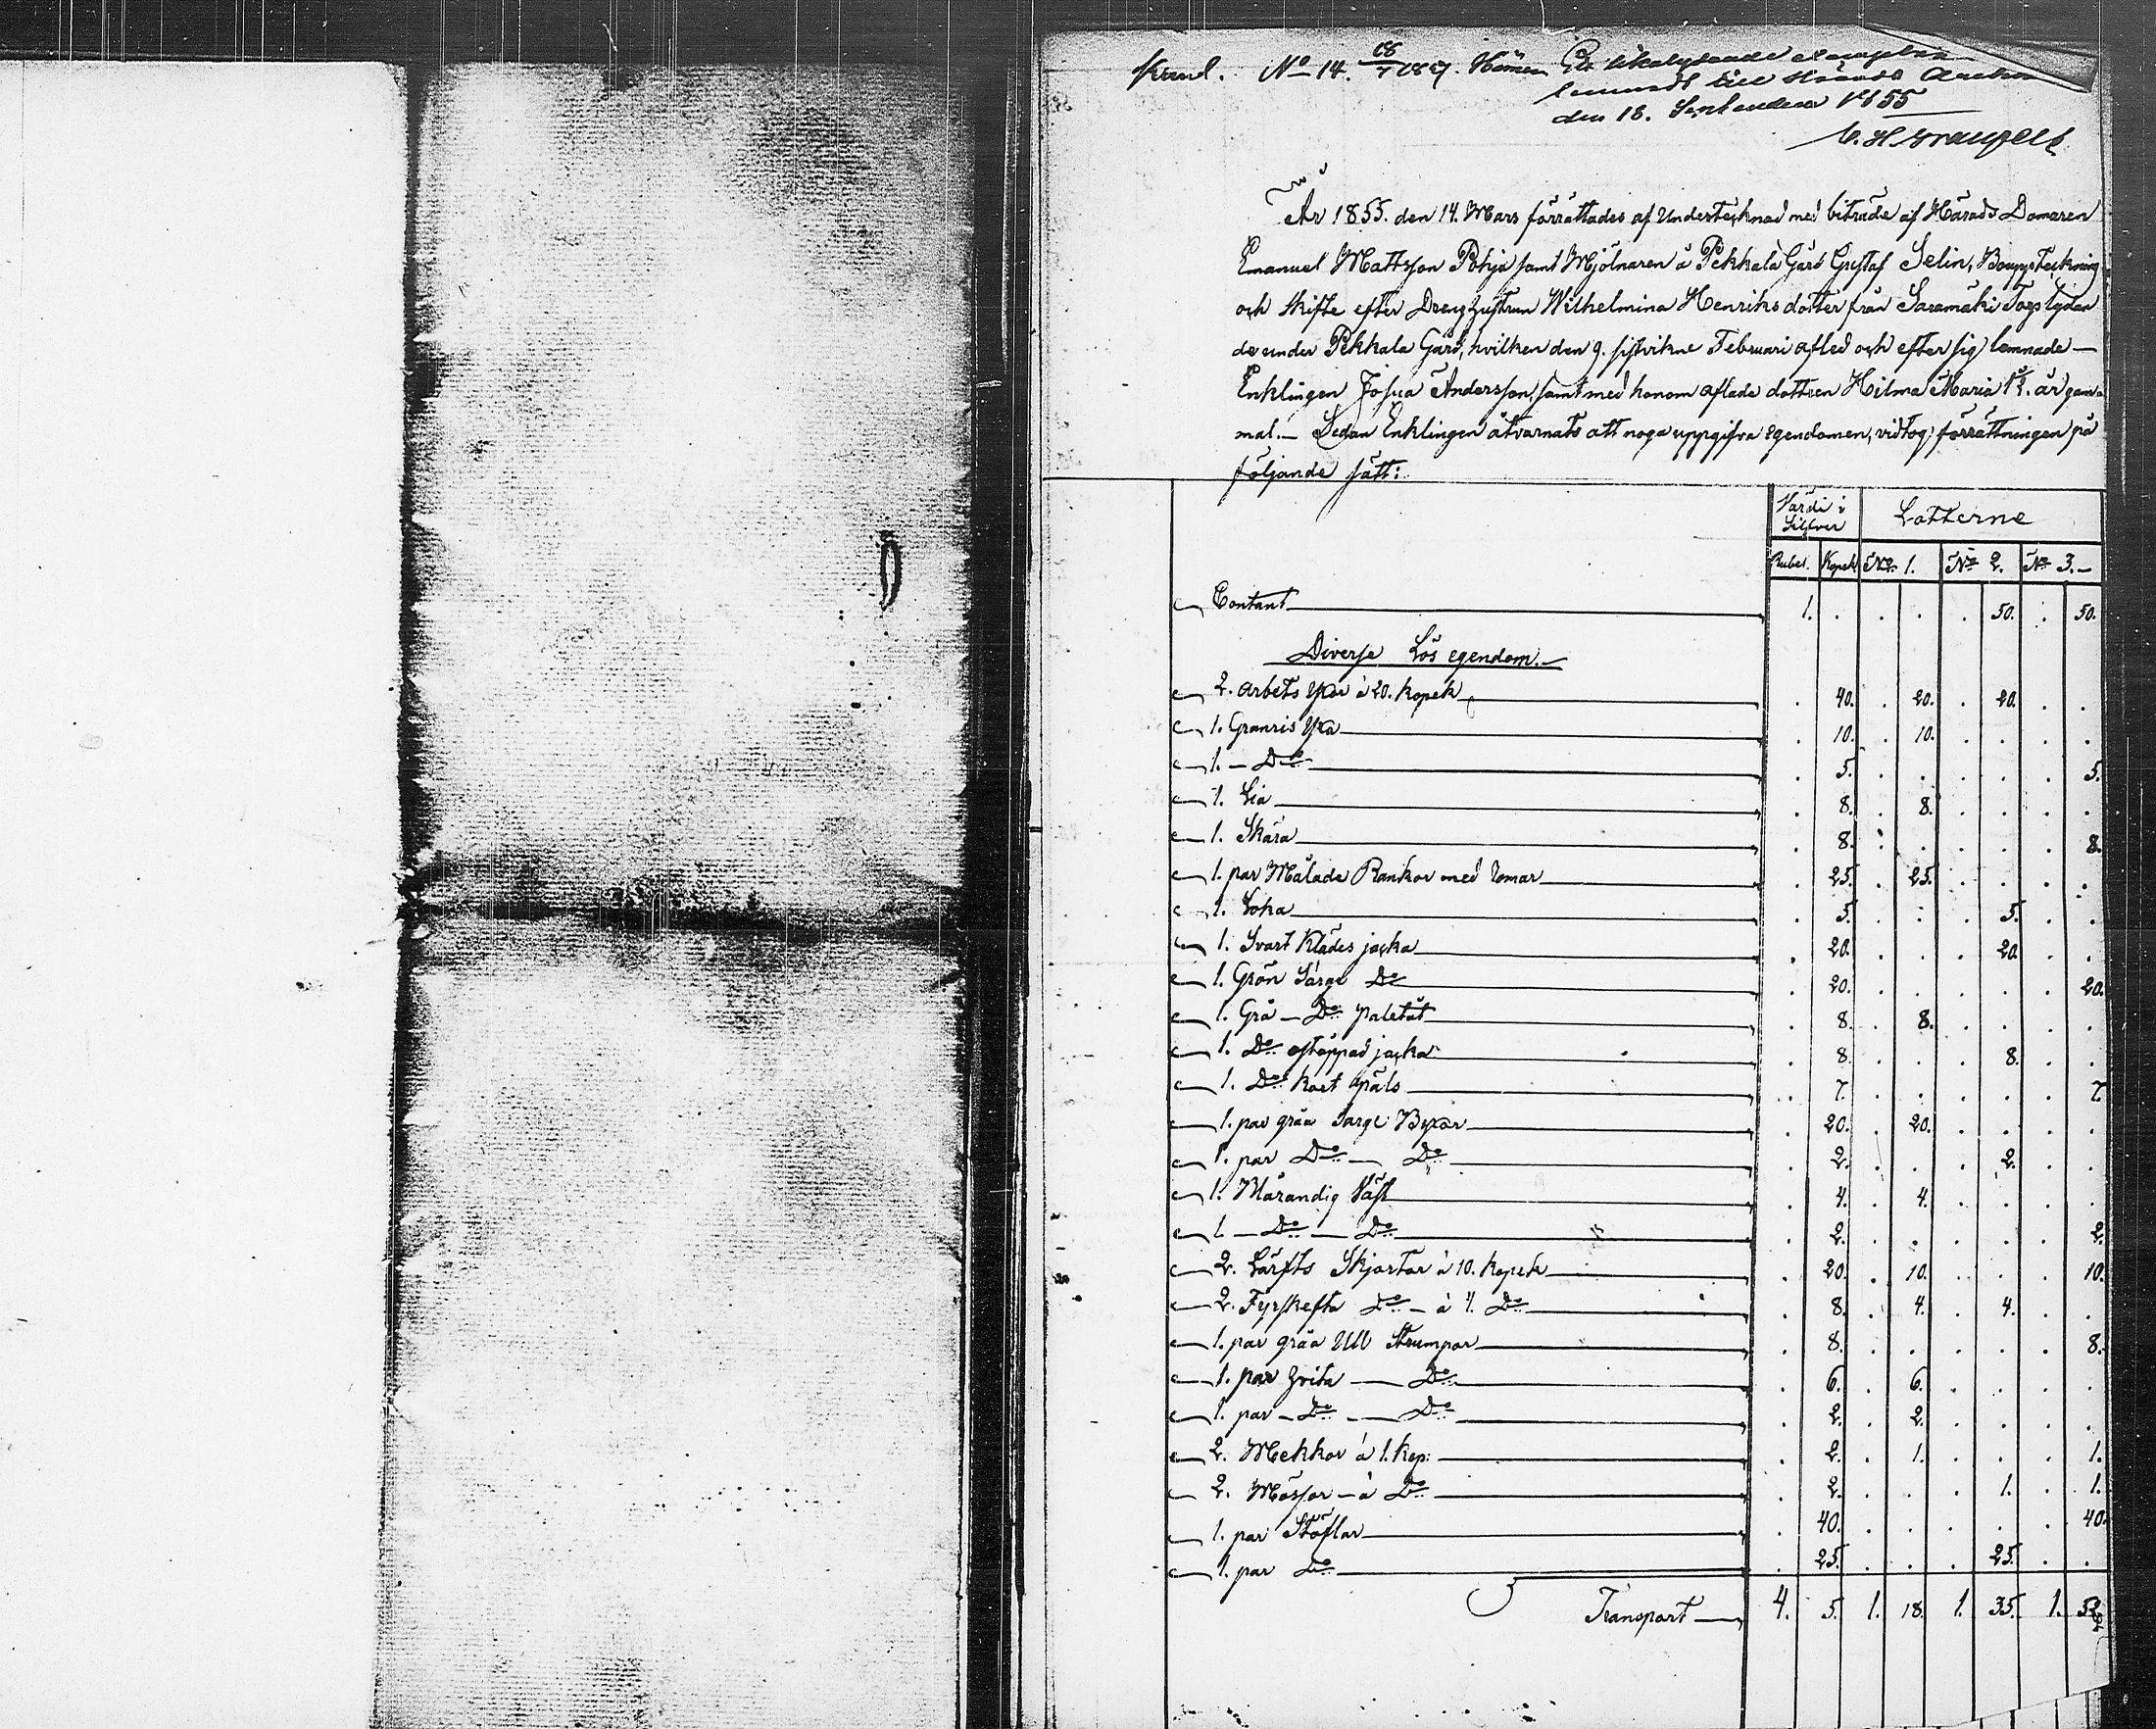 No 14.
den 18. September 1855
År 1855. den 14. Mars förrättades af Undertecknad med biträde af Härads Domaren
Emanuel Mattsson Pohja samt Mjölnaren å Pekkala Gård Gustaf Selin, Bouppteckning
och skifte efter Dreng hustrun Wilhelmina Henriksdotter från Saramäki Torp lydan
de under Pekkala Gård, hvilken den 9. sistvikne Februari afled och efter sig lemnade —
Enklingen Josua Andersson, samt med honom aflade dottren Hilma Maria 1½. år gam
mal. — Sedan Enklingen åtvarnats att noga uppgifva egendomen, vidtog förrättningen på
följande sätt:
Värde i Silfver Lotterne
Rubel. Kopek No 1. No 2. No 3. —
Contant 1. . . . . 50. . 50.
Diverse Lös egendom. —
2. arbets yxor à 20. kopek . 40. . 20. . 20. . .
1. Granris yxa . 10. . 10. . . . .
1. — Do . 5. . . . . . 5.
1. Lia . 8. . 8. . . . .
1. Skära . 8. . . . . . 8.
1. par Målade Rankor med tömar . 25. . 25. . . . .
1. Loka . 5. . . . 5. . .
1. Svart Klädes jacka . 20. . . . 20. . .
1. Grön Sarge Do . 20. . . . . . 20.
1. Grå — Do paletåt . 8. . 8. . . . .
1. Do ostoppad jacka . 8. . . . 8. . .
1. Do kort späls . 7. . . . . . 7.
1. par gråa Sarge Byxor . 20. . 20. . . . .
1. par Do — Do . 2. . . . 2. . .
1. Mårandig Väst . 4. . 4. . . . .
1. — Do — Do . 2. . . . . . 2.
2. Lärfts Skjortor à 10. kopek . 20. . 10. . . . 10.
2. Fyrskefta Do — à 4. Do . 8. . 4. . 4. . .
1. par gråa Ull Strumpor . 8. . . . . . 8.
1. par hvita — Do . 6. . 6. . . . .
1. par — Do — Do . 2. . 2. . . . .
2. Mekkor à 1. kop: . 2. . 1. . . . 1.
2. Mössor — à Do . 2. . . . 1. . 1.
1. par Stöflar . 40. . . . . . 40.
1. par Do . 25. . . . 25. . .
Transport — 4. 5. 1. 18. 1. 35. 1. 52.